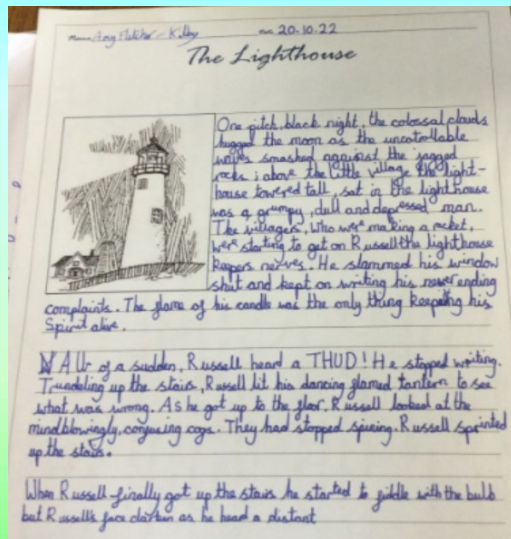 Name Amy Fletcher - Kelby Date 20.10.22
The Lighthouse
One pitch, black night, the colossal clouds
hugged the moon as the uncontrollable
waves smashed against the jagged
rocks; above the little village the light-
house towered tall, sat in the lighthouse
was a grumpy, dull and depressed man.
The villagers, who were making a racket,
were starting to get on Russell the lighthouse
keepers nerves. He slammed his window
shut and kept on writing his never ending
complaints. The flame of his candle was the only thing keeping his
Spirit alive.
All of a sudden, Russell heard a THUD! He stopped writing.
Trundeling up the stairs, Russell lit his dancing flamed lantern to see
what was wrong. As he got up to the floor, Russell looked at the
mindblowingly, confusing cogs. They had stopped spining. Russell sprinted
up the stairs.
When Russell finally got up the stairs he started to fiddle with the bulb
but Russell's face darken as he heard a distant